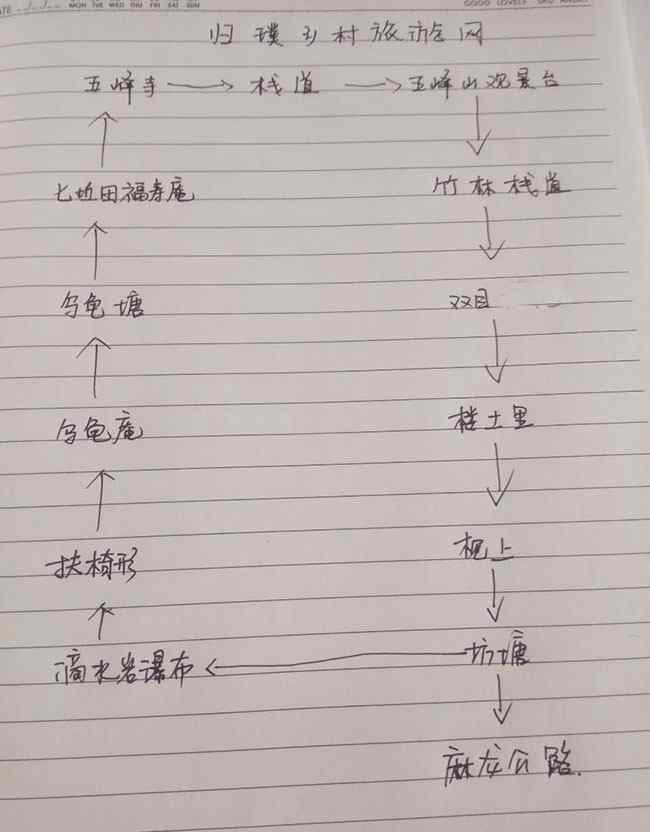 DATE
MON TUE WED THU FRI SAT SUN
GOOD LOVELY
归璞乡村旅游网
五峰寺 → 栈道 → 五峰山观景台
七坵田福寿庵
竹林栈道
乌龟塘
双目
乌龟庵
楼土里
扶椅形
枧上
滴水岩瀑布 ← 坊塘
麻龙公路.